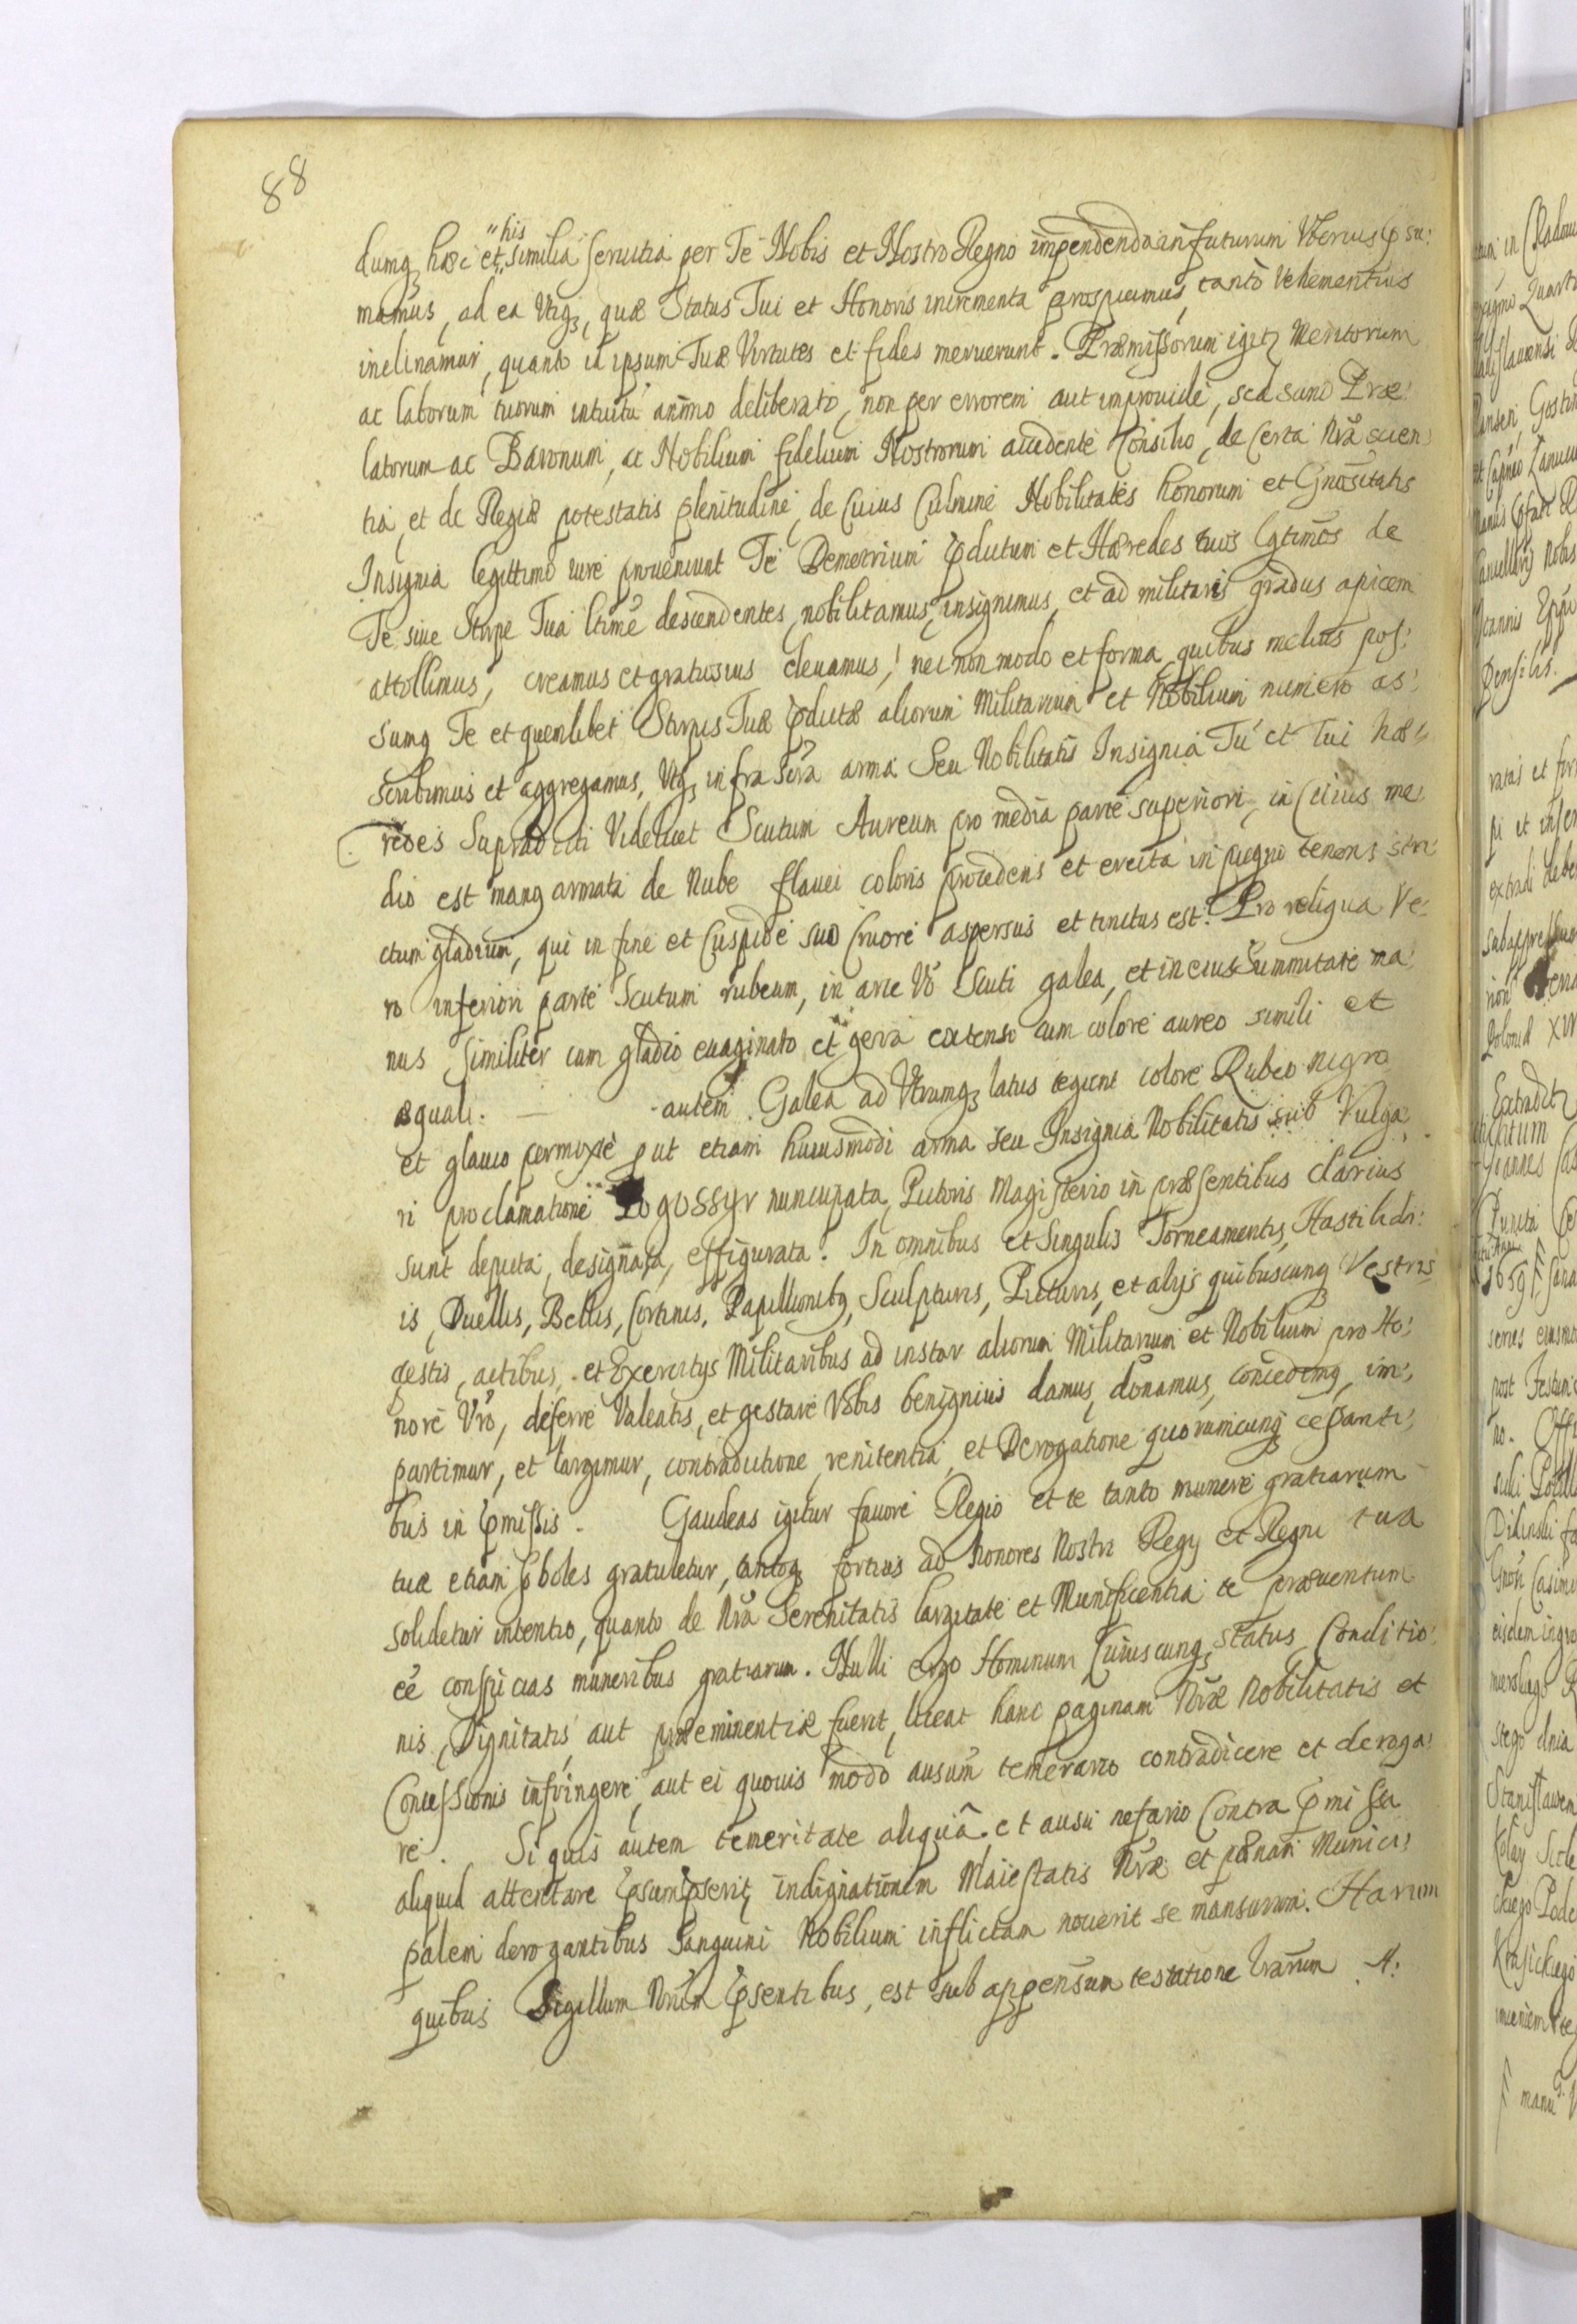 88
his
dumq hæc et similia seruitia per Te Nobis et Nostro Regno impendenda in futurum Vberius psu:
mamus, ad ea Vtiq, quæ Status Tui et Honoris incrementa prospicimus, tanto Vehementius
inclinamur, quanto id ipsum Tuæ Virtutes et fides meruerunt. Præmissorum igitz Meritorum
ac laborum tuorum intuitu animo deliberato, non per errorem aut improuide, sed sano Præ:
latorum ac Baronum, ac Nobilium fidelium Nostrorum accedente Consilio, de Certa Nra scien:
tia, et de Regiæ potestatis plenitudine, de Cuius Culmine Nobilitates honorum et Gnositatis
Insignia legittimo iure proueniunt Te Demetrium pdictum et Hæredes tuos lgtimos de
Te siue Stirpe Tua ltime descendentes, nobilitamus, insignimus, et ad militaris gradus apicem
attollimus, creamus et gratiosius eleuamus, nec non modo et forma, quibus melius pos:
sumq Te et quemlibet Stirpis Tuæ pdictæ aliorum Militarium et Nobilium numero as:
scribimus et aggregamus, Vtq infra scra arma Seu Nobilitatis Insignia Tu et Tui hæ:
redes Supradicti Videlicet Scutum Aureum pro media parte superiori, in Cuius me:
dio est manq armata de Nube flauei coloris procedens et erecta in pugno tenens stri:
ctum gladium, qui in fine et Cuspide suo Cruore aspersus et tinctus est. Pro reliqua Ve:
ro inferiori parte Scutum rubeum, in arce Vo Scuti galea, et in eius Summitate ma:
nus similiter cum gladio euaginato et extenso cum colore aureo simili et
æquali. — autem Galea ad Vtrumq latus tegunt colore Rubeo nigro
et glauco permixte put etiam huiusmodi arma seu Insignia Nobilitatis sub Vulga:
ri proclamatione Pogossyr nuncupata, Pictoris Magisterio in præsentibus clarius
sunt depicta, designata, effigurata. In omnibus et Singulis Torneamentis, Hastiludi:
is, Duellis, Bellis, Cortinis, Papillionibq, Sculpturis, Picturis, et alijs quibuscunq Vestris
gestis, actibus, et Exercitijs Militaribus ad instar aliorum Militarium et Nobilium pro Ho:
nore Vro, deferre Valeatis, et gestare Vobis benignius damus, donamus, concedimq, im:
partimur, et largimur, contradictione, renitentia, et Derogatione quorumcunq cessanti:
bus in pmissis. Gaudeas igitur fauore Regio et te tanto munere gratiarum
tuæ etiam pboles gratuletur, tantoq fortius ad honores Nostri Regij et Regni tua
solidetur intentio, quanto de Nra Serenitatis largitate et Munificentia te præuentum
ee conspicias muneribus gratiarum. Nulli ergo Hominum Cuiuscunq, Status, Conditio:
nis, Dignitatis, aut præeminentiæ fuerit, liceat hanc paginam Nræ Nobilitatis et
Concessionis infringere, aut ei quouis modo ausum temerario contradicere et deroga:
re. Si quis autem temeritate aliquâ et ausu nefario Contra pmissa
aliquid attentare psumpserit, indignationem Maiestatis Nræ et pænam Munici:
palem derogantibus Sanguini Nobilium inflictam nouerit se mansurum. Harum
quibus Sigillum Nrum psentibus, est subappensum testatione lrarum A: